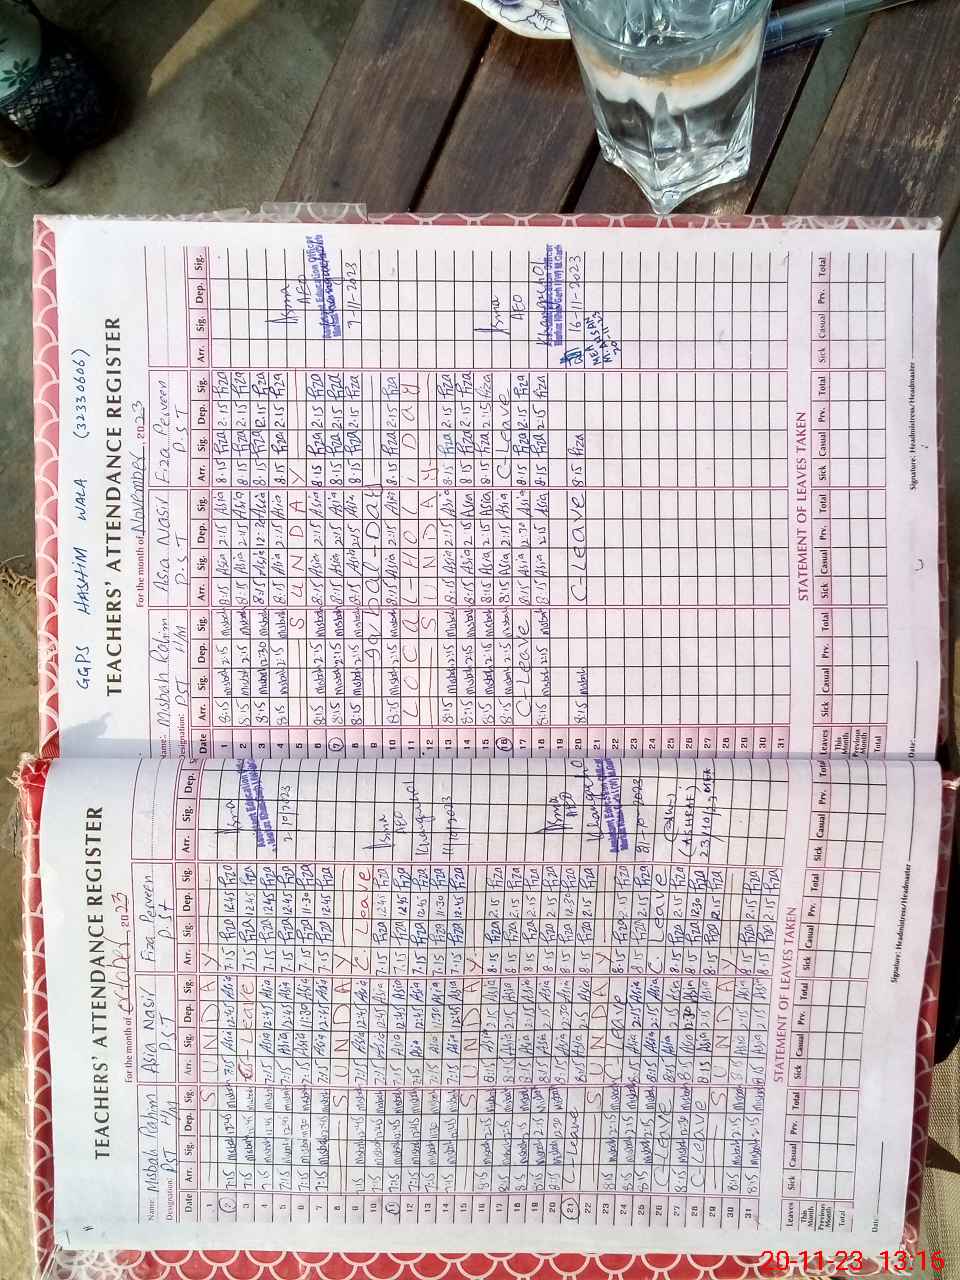 GGPS HASHIM WALA (32330606)
TEACHERS' ATTENDANCE REGISTER
For the month of November, 2023
Name: Misbah Rahim Asia Nasir Fiza Perveen
Designation: PST H/M P.S.T P.S.T
Date Arr. Sig. Dep. Sig. Arr. Sig. Dep. Sig. Arr. Sig. Dep. Sig. Arr. Sig. Dep. Sig.
1 8:15 misbah 2:15 misbah 8:15 Asia 2:15 Asia 8:15 Fiza 2:15 Fiza
2 8:15 misbah 2:15 misbah 8:15 Asia 2:15 Asia 8:15 Fiza 2:15 Fiza
3 8:15 misbah 12:30 misbah 8:15 Asia Asia 8:15 Fiza 12:15 Fiza
4 8:15 misbah 2:15 misbah 8:15 Asia 2:15 Asia 8:15 Fiza 2:15 Fiza
5 S U N D A Y
6 8:15 misbah 2:15 misbah 8:15 Asia 2:15 Asia 8:15 Fiza 2:15 Fiza
7 8:15 misbah 2:15 misbah 8:15 Asia 2:15 Asia 8:15 Fiza 2:15 Fiza
8 8:15 misbah 2:15 misbah 8:15 Asia 2:15 Asia 8:15 Fiza 2:15 Fiza
9 Iqbal-Day
10 8:15 misbah 2:15 misbah 8:15 Asia 2:15 Asia 8:15 Fiza 2:15 Fiza
11 L O C A L - H O L I D A Y
12 S U N D A Y
13 8:15 misbah 2:15 misbah 8:15 Asia 2:15 Asia 8:15 Fiza 2:15 Fiza
14 8:15 misbah 2:15 misbah 8:15 Asia 2:15 Asia 8:15 Fiza 2:15 Fiza
15 8:15 misbah 2:15 misbah 8:15 Asia 2:15 Asia 8:15 Fiza 2:15 Fiza
16 8:15 misbah 2:15 misbah 8:15 Asia 2:15 Asia C-Leave
17 C-Leave 8:15 Asia 12:30 Asia 8:15 Fiza Fiza
18 8:15 misbah 2:15 misbah 8:15 Asia 2:15 Asia 8:15 Fiza 2:15 Fiza
19
20 8:15 misbah C-Leave 8:15 Fiza
21
22
23
24
25
26
27
28
29
30
31
Asma
AEO
Assistant Education Officer
7-11-2023
Asma
AEO
Khangarh
16-11-2023
MEA
AHSAN
STATEMENT OF LEAVES TAKEN
Leaves Sick Casual Prv. Total Sick Casual Prv. Total Sick Casual Prv. Total Sick Casual Prv. Total
This Month
Previous Month
Total
Date: Signature: Headmistress/Headmaster
TEACHERS' ATTENDANCE REGISTER
For the month of October, 2023
Name: Misbah Rahim Asia Nasir Fiza Perveen
Designation: PST H/M PST P.St
Date Arr. Sig. Dep. Sig. Arr. Sig. Dep. Sig. Arr. Sig. Dep. Sig. Arr. Sig. Dep.
1 S U N D A Y
2 7:15 misbah 12:45 misbah 7:15 Asia 12:45 Asia 7:15 Fiza 12:45 Fiza
3 7:15 misbah misbah C-Leave 7:15 Fiza 12:45 Fiza
4 7:15 misbah misbah 7:15 Asia 12:45 Asia 7:15 Fiza 12:45 Fiza
5 7:15 misbah misbah 7:15 Asia 12:45 Asia 7:15 Fiza 12:45 Fiza
6 7:15 misbah misbah 7:15 Asia 11:30 Asia 7:15 Fiza 11:30 Fiza
7 7:15 misbah misbah 7:15 Asia 12:45 Asia 7:15 Fiza 12:45 Fiza
8 S U N D A Y
9 misbah 12:45 misbah 7:15 Asia 12:45 Asia C Leave
10 7:15 misbah 12:45 misbah 7:15 Asia 12:45 Asia 7:15 Fiza 12:45 Fiza
11 7:15 misbah 12:45 misbah 7:15 Asia 12:45 Asia 7:15 Fiza 12:45 Fiza
12 7:15 misbah 12:45 misbah 7:15 Asia 12:45 Asia 7:15 Fiza 12:45 Fiza
13 7:15 misbah misbah 7:15 Asia 11:30 Asia 7:15 Fiza 11:30 Fiza
14 7:15 misbah 12:45 misbah 7:15 Asia 12:45 Asia 7:15 Fiza 12:45 Fiza
15 S U N D A Y
16 8:15 misbah 2:15 misbah 8:15 Asia 2:15 Asia 8:15 Fiza 2:15 Fiza
17 8:15 misbah 2:15 misbah 8:15 Asia 2:15 Asia 8:15 Fiza 2:15 Fiza
18 8:15 misbah 2:15 misbah 8:15 Asia 2:15 Asia 8:15 Fiza 2:15 Fiza
19 8:15 misbah 2:15 misbah 8:15 Asia 2:15 Asia 8:15 Fiza 2:15 Fiza
20 8:15 misbah misbah 8:15 Asia 12:30 Asia 8:15 Fiza 12:30 Fiza
21 C-Leave 8:15 Asia Asia 8:15 Fiza 2:15 Fiza
22 S U N D A Y
23 8:15 misbah 2:15 misbah C-Leave
24 8:15 misbah 2:15 misbah 8:15 Asia 2:15 Asia 8:15 Fiza 2:15 Fiza
25 8:15 misbah 2:15 misbah 8:15 Asia 2:15 Asia
26 C-Leave 8:15 Asia 2:15 Asia C. Leave
27 8:15 misbah misbah 8:15 Asia 12:30 Asia 8:15 Fiza 12:30 Fiza
28 C-Leave 8:15 Asia 2:15 Asia 8:15 Fiza Fiza
29 S U N D A Y
30 8:15 misbah 2:15 misbah 8:15 Asia 2:15 Asia 8:15 Fiza 2:15 Fiza
31 8:15 misbah 2:15 misbah 8:15 Asia 2:15 Asia 8:15 Fiza 2:15 Fiza
Asma
2-10-2023
Asma
AEO
Khangarh
11/10/2023
Asma
AEO
Khangarh
Assistant Education Officer
21-10-2023
(ASHRAF)
23/10/23 MEA
STATEMENT OF LEAVES TAKEN
Leaves Sick Casual Prv. Total Sick Casual Prv. Total Sick Casual Prv. Total Sick Casual Prv. Total
This Month
Previous Month
Total
Date: Signature: Headmistress/Headmaster
20-11-23 13:16